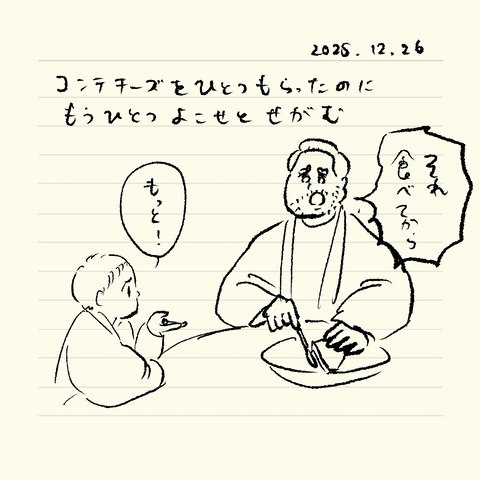 2025.12.26
コンテチーズをひとつもらったのに
もうひとつよこせとせがむ
それ
食べてから
もっと！